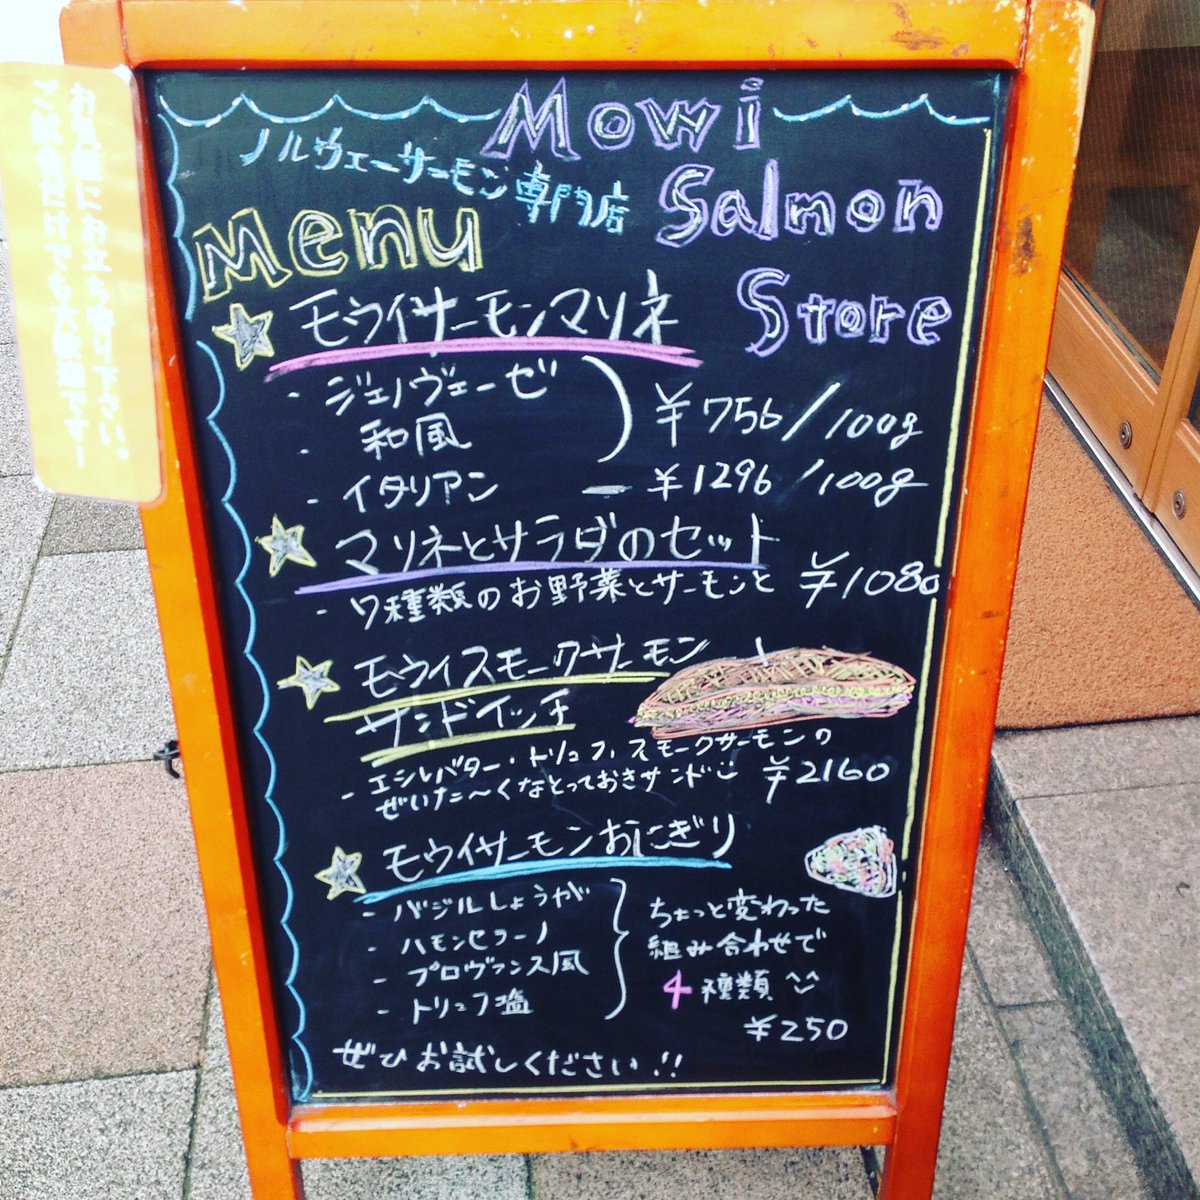 お気軽にお立ち寄り下さい。
ご試食だけでも大歓迎です!
Mowi
Salmon
Store
ノルウェーサーモン専門店
Menu
モウイサーモンマリネ
- ジェノヴェーゼ
- 和風
¥756/100g
- イタリアン - ¥1296/100g
マリネとサラダのセット
- 7種類のお野菜とサーモンと ¥1080
モウイスモークサーモン
サンドイッチ
- エシレバター・トリュフ,スモークサーモンの
ぜいた〜くなとっておきサンド ¥2160
モウイサーモンおにぎり
- バジルしょうが
- ハモンセラーノ
- プロヴァンス風
- トリュフ塩
ちょっと変わった
組み合わせで
4種類^^
¥250
ぜひお試しください!!